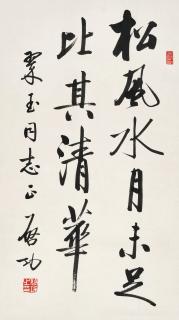 松風水月未足
比其清華
翠玉同志正 啓功